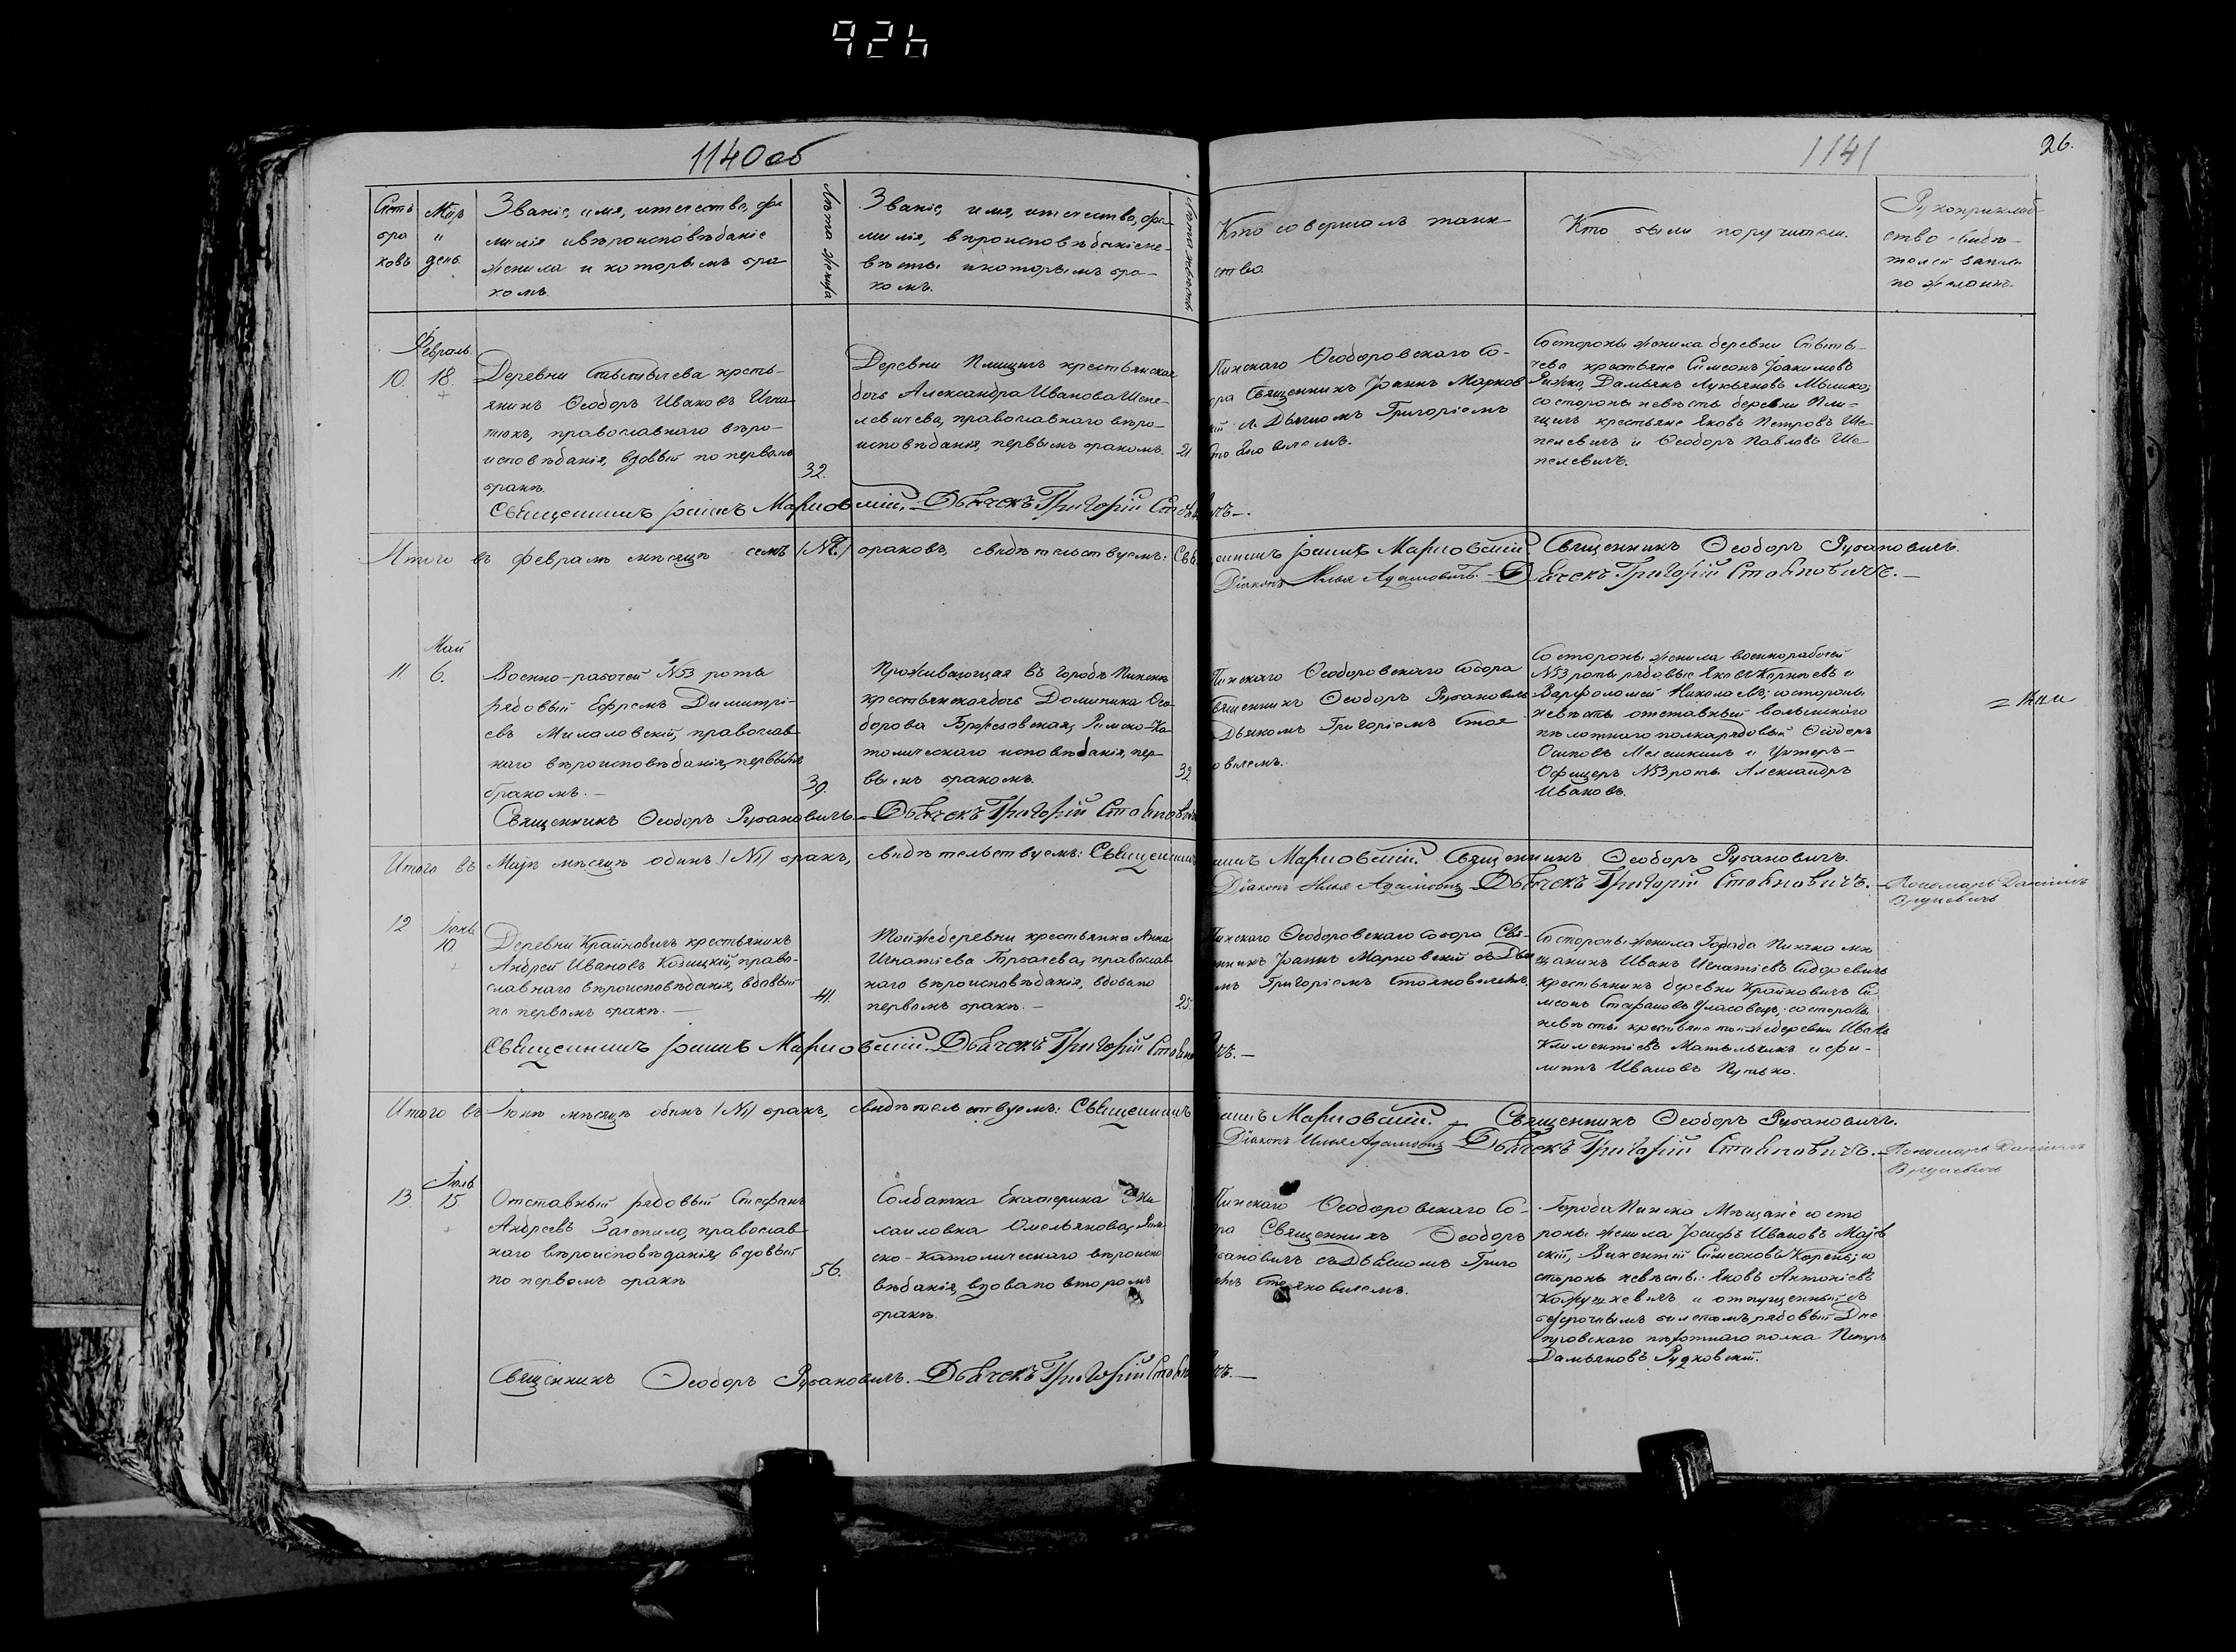 926
1140 об
1141
26.
Счетъ браковъ
Мѣсяцъ и день.
Званіе, имя, отчество, фа-
милія и вѣроисповѣданіе
жениха и которымъ бра-
комъ.
Лѣта жениха
Званіе, имя, отчество, фа-
милія, вѣроисповѣданіе не-
вѣсты и которымъ бра-
комъ.
Лѣта невѣсты
Кто совершалъ таин-
ство.
Кто были поручители.
Рукоприклад-
ство свидѣ-
телей записи
по желанію.
Февраль.
10. 18.
Деревни крестья-
янинъ Ѳеодоръ Ивановъ Игна-
тюкъ, православнаго вѣро-
исповѣданія, вдовый по первомъ
бракѣ.
32.
Деревни Плещицъ крестьянская
дочь Александра Иванова Шепе-
левичева, православнаго вѣро-
исповѣданія, первымъ бракомъ.
21
Пинскаго Ѳеодоровскаго Со-
бора Священникъ Іоаннъ Марков
скій съ Дьячкомъ Григоріемъ
Стояновичемъ.
Со стороны жениха деревни
крестьяне Симеонъ Іоакимовъ
Дамьянъ Лукьяновъ
со стороны невѣсты деревни Пле-
щицъ крестьяне Яковъ Петровъ Ше-
пелевичъ и Ѳеодоръ Павловъ Ше-
пелевичъ.
Священникъ Іоаннъ Марковскій. Дьячекъ Григорій Стояновичъ.
Итого въ февралѣ мѣсяцѣ семь /№7./ браковъ, свидѣтельствуемъ: Священникъ Іоаннъ Марковскій. Священникъ Ѳеодоръ Рубановичъ.
Діаконъ Илья Адамовичъ. Дьячекъ Григорій Стояновичъ.
Май
11. 6.
Военно-рабочей №53 роты
рядовый Ефремъ Димитрі-
евъ православ-
наго вѣроисповѣданія, первымъ
бракомъ.
39.
Проживающая въ городѣ Пинскѣ
крестьянская дочь Доминика Ѳео-
дорова Римско-Ка-
толическаго исповѣданія, пер-
вымъ бракомъ.
32
Пинскаго Ѳеодоровскаго Собора
Священникъ Ѳеодоръ Рубановичъ
Дьячкомъ Григоріемъ Стоя-
новичемъ.
Со стороны жениха военнорабочей
№53 роты рядовые Яковъ Корнѣевъ и
Варфоломей Николаевъ; со стороны
невѣсты отставный волынскаго
пѣхотнаго полка рядовый Ѳеодоръ
Осиповъ и Унтеръ-
Офицеръ №53 роты Александръ
Ивановъ.
Священникъ Ѳеодоръ Рубановичъ. Дьячекъ Григорій Стояновичъ
Итого въ Маѣ мѣсяцѣ одинъ /№1/ бракъ, свидѣтельствуемъ: Священникъ Іоаннъ Марковскій. Священникъ Ѳеодоръ Рубановичъ.
Діаконъ Илья Адамовичъ Дьячекъ Григорій Стояновичъ.
Пономарь
Іюнь
12 10
Деревни Крайновичъ крестьянинъ
Андрей Ивановъ Козицкій, право-
славнаго вѣроисповѣданія, вдовый
по первомъ бракѣ.
41.
Той же деревни крестьянка Анна
Игнатіева Горбачева, православ-
наго вѣроисповѣданія, вдова по
первомъ бракѣ.
25.
Пинскаго Ѳеодоровскаго Собора Свя-
щенникъ Іоаннъ Марковскій съ Дьяч-
комъ Григоріемъ Стояновичемъ.
Со стороны жениха Города Пинска мѣ-
щанинъ Иванъ Игнатіевъ Сидоревичъ
крестьянинъ деревни Крайновичъ Си-
меонъ Стефановъ со стороны
невѣсты крестьяне той же деревни Иванъ
Климентіевъ и Фи-
липпъ Ивановъ Путько.
Священникъ Іоаннъ Марковскій. Дьячекъ Григорій Стояновичъ.
Итого въ Іюнѣ мѣсяцѣ одинъ /№1/ бракъ, свидѣтельствуемъ: Священникъ Іоаннъ Марковскій. Священникъ Ѳеодоръ Рубановичъ.
Діаконъ Илья Адамовичъ Дьячекъ Григорій Стояновичъ.
Пономарь
Іюль
13. 15.
Отставный рядовый Стефанъ
Андреевъ Зачепило, православ-
наго вѣроисповѣданія, вдовый
по первомъ бракѣ
56.
Солдатка Екатерина Ми-
хаиловна Омельянова, Рим-
ско-католическаго вѣроиспо-
вѣданія, вдова по второмъ
бракѣ.
Пинскаго Ѳеодоровскаго Со-
бора Священникъ Ѳеодоръ
Рубановичъ съ Дьячкомъ Григо-
ріемъ Стояновичемъ.
Города Пинска Мѣщане со сто-
роны жениха Іосифъ Ивановъ Маѣв-
скій, Викентій Симеоновъ Корень; со
стороны невѣсты: Яковъ Антоніевъ
и отпущенный съ
безсрочнымъ билетомъ рядовый Дне-
провскаго пѣхотнаго полка Петръ
Дамьяновъ Рудковскій.
Священникъ Ѳеодоръ Рубановичъ. Дьячекъ Григорій Стояновичъ.